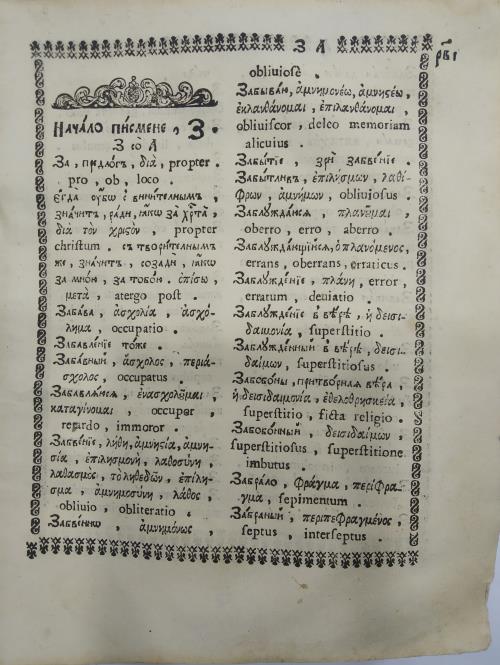 З А
рв҃і
Нача́ло пи́смене , З .
З со А
За , предло́гъ , διὰ , propter .
pro , ob , loco .
Егда̀ ᲂу҆́бѡ с̾ вини́телнымъ ,
зна́читъ , ра́ди , ꙗ҆́кѡ за хр҃та̀ ,
διὰ τὸν χριςὸν , propter
christum . съ твори́телнымъ
же , зна́читъ , созадѝ , ꙗ҆́кѡ
за мно́ю , за тобо́ю . ἐπίσω ,
μετὰ , atergo post .
Заба́ва , ἀσχολία , ἀσχό-
λημα , occupatio .
Забавле́нїе то́же .
Заба́вный , ἄσχολος , περιά-
σχολος , occupatus .
Забавлѧ́юсѧ , ἐνασχολῦμαι ,
καταγίνομαι , occupor ,
retardo , immoror .
Забве́нїе , λήθη , ἀμνησία , ἀμνη-
σία , ἐπιλησμονὴ , λαθοσύνη ,
λαθασμὸς , τὸ ληθεδὼν , ἐπίλη-
σμα , ἀμνημοσύνη , λάθος ,
oblivio , obliteratio .
Забве́ннѡ , ἀμνημόνως ,
obliviosè .
Забыва́ю , ἀμνημονέω , ἀμνηςέω ,
ἐκλανθάνομαι , ἐπιλανθάνομαι ,
obliviscor , deleo memoriam
alicuius .
Забы́тїе , зрѝ забве́нїе .
Забы́тливъ , ἐπιλήσμων , λαθί-
φρων , ἀμνήμων , obliviosus .
Заблужда́юсѧ , πλανῶμαι ,
oberro , erro , aberro .
Заблужда́ющїйсѧ , ὁ πλανόμενος ,
errans , oberrans , erraticus .
Заблужде́нїе , πλάνη , error ,
erratum , deviatio .
Заблужде́нїе в̾ вѣ́рѣ , ἡ δεισι-
δαιμονία , superstitio .
Заблужде́нный в̾ вѣ́рѣ , δεισι-
δαίμων , superstitiosus .
Забобо́ны , притво́рнаѧ вѣ́ра ,
ἡ δεισιδαιμονία , ἐθελοθρησκεία ,
superstitio , ficta religio .
Забобо́нный , δεισιδαίμων ,
superstitiosus , superstitione
imbutus .
Забра́ло , φράγμα , περίφρα-
γμα , sepimentum .
Забра́ный , περιπεφραγμένος ,
septus , interseptus .